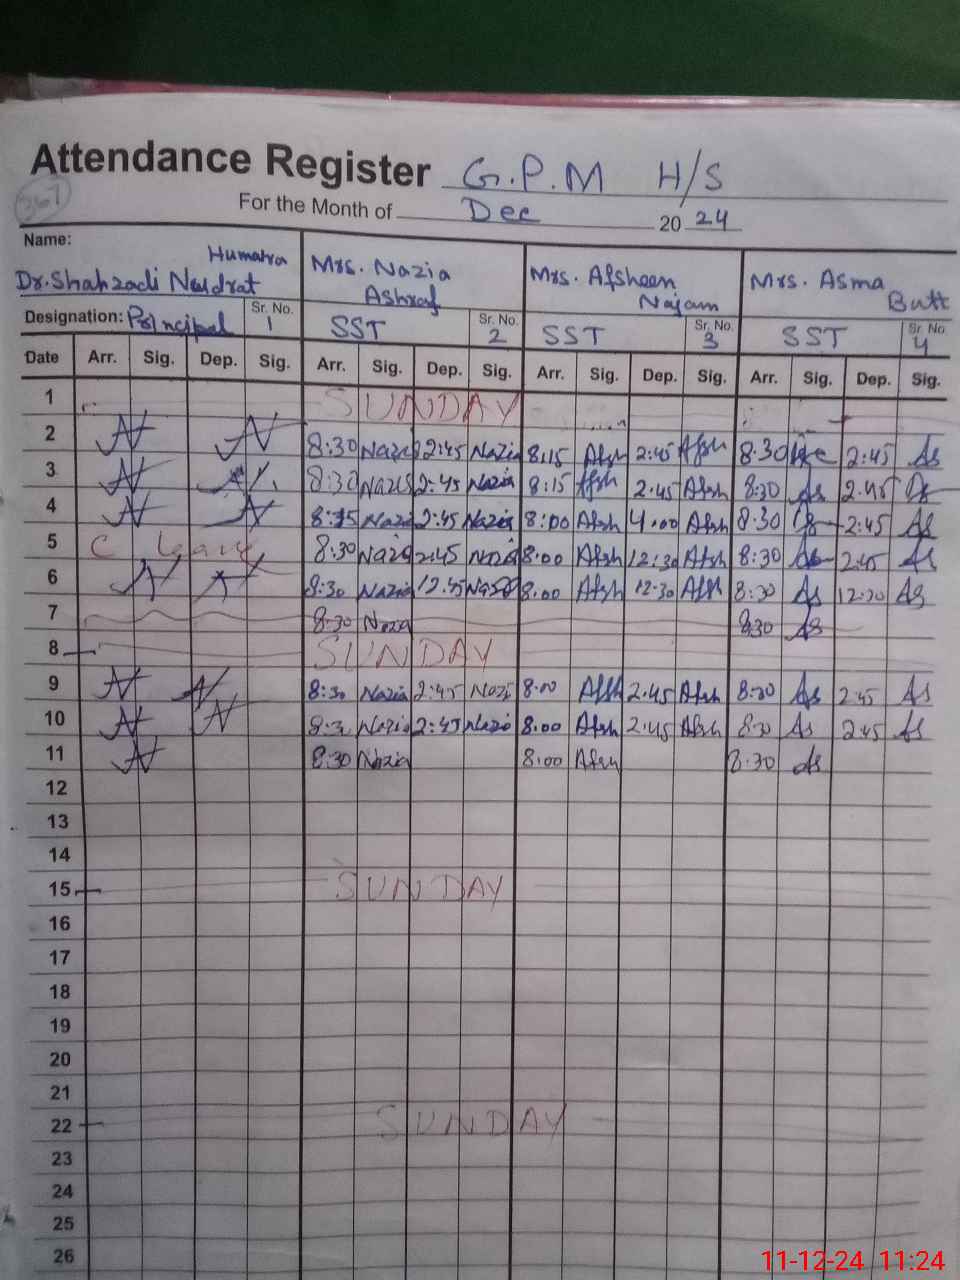 Attendance Register G.P.M H/S
367
For the Month of Dec 2024
Name:
Humaira
Dr. Shahzadi Nudrat
Mrs. Nazia
Ashraf
Mrs. Afsheen
Najam
Mrs. Asma
Butt
Designation: Principal Sr. No. 1 SST Sr. No. 2 SST Sr. No. 3 SST Sr. No. 4
Date Arr. Sig. Dep. Sig. Arr. Sig. Dep. Sig. Arr. Sig. Dep. Sig. Arr. Sig. Dep. Sig.
1 SUNDAY
2 8:30 Nazia 2:45 Nazia 8:15 Afsh 2:45 Afsh 8:30 2:45 As
3 8:30 Nazia 2:45 Nazia 8:15 Afsh 2:45 Afsh 8:30 As 2:45
4 Nazia 2:45 Nazia 8:00 Afsh 4:00 Afsh 8:30 2:45 As
5 C leave 8:30 Nazia 2:45 Nazia 8:00 Afsh 12:30 Afsh 8:30 As 2:45 As
6 8:30 Nazia 12:45 Nazia 8:00 Afsh 12:30 Afsh 8:30 As 12:30 As
7 8:30 Nazia 8:30 As
8 SUNDAY
9 8:30 Nazia 2:45 Nazi 8:00 Afsh 2:45 Afsh 8:30 As 2:45 As
10 8:3 Nazia 2:45 Nazia 8:00 Afsh 2:45 Afsh 8:30 As 2:45 As
11 8:30 Nazia 8:00 Afsh 8:30 As
12
13
14
15 SUNDAY
16
17
18
19
20
21
22 SUNDAY
23
24
25
26
11-12-24 11:24